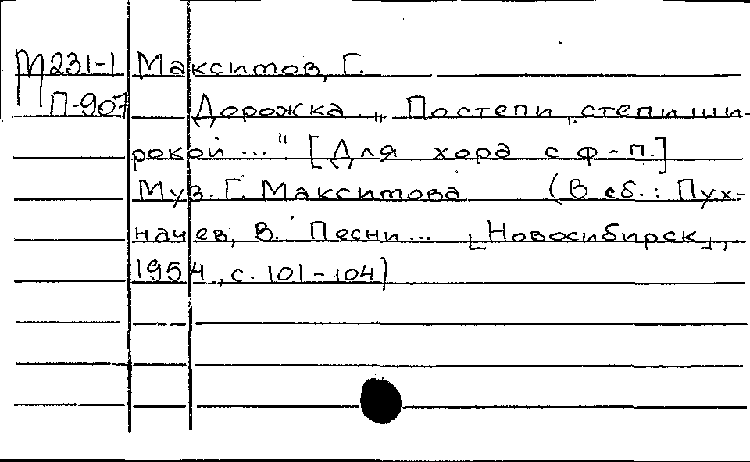 М231-1 Максимов, Г.
П-907 Дорожка „Постепи, степи ши-
рокой..." [Для хора с ф-п.]
Муз. Г. Максимова (В сб.: Пух-
начев, В. Песни... [Новосибирск],
1954, с. 101-104)